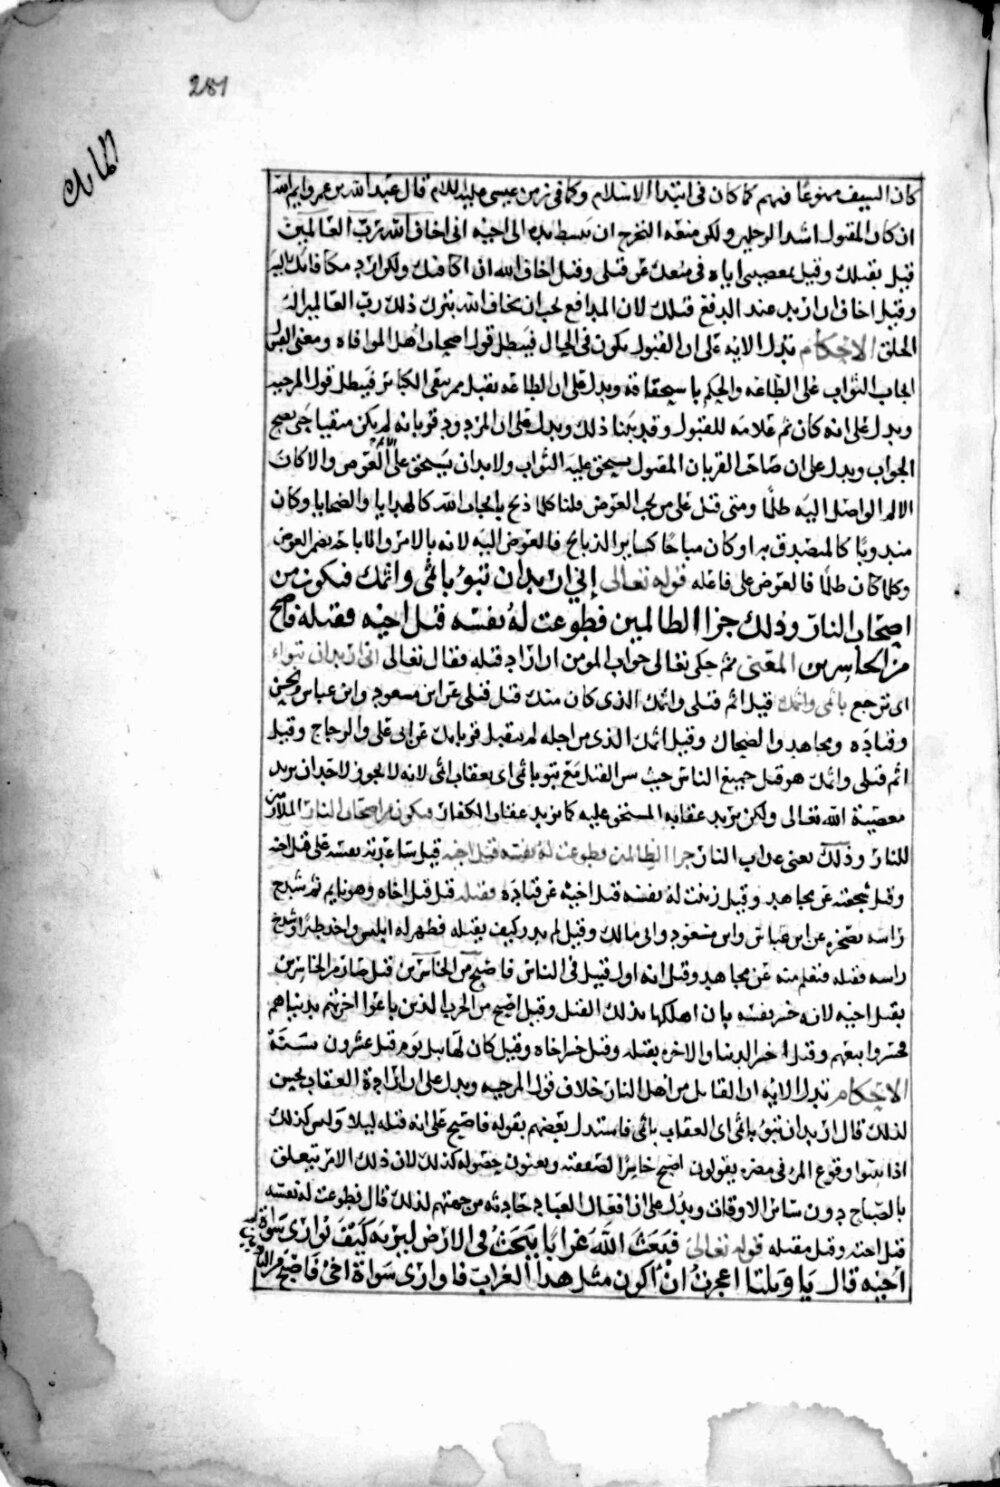 281
المايك
كان السيف ممنوعا فيهم كما كان في ابتدا الاسلام وكما في زمن عيسى عليه السلام قال عبد الله بن عمر وايم الله
ان كان المقتول اشد الرجلين ولكن منعه التحرج ان يبسط يده الى اخيه اني اخاف الله رب العالمين
قيل بقتلك وقيل بمعصيتي اياه في منعك عن قتلي وقيل اخاف الله ان اكافيك ولكن اريد مكافاتك
وقيل اخاف ان ازيد عند الدفع قتلك لان المدافع يجب ان يخاف الله بترك ذلك رب العالمين اله
الخلق الاحكام تدل الاية على ان القبول يكون في الحال فيبطل قول اصحاب اهل الموافاة ومعنى القبول
ايجاب الثواب على الطاعة والحكم باستحقاقه ويدل على ان الطاعة تقبل ممن يتقي الكبائر فيبطل قول المرجية
ويدل على انه كان ثم علامة للقبول وقد بينا ذلك ويدل على ان المردود قربانه لم يكن متقيا حتى يصح
الجواب ويدل على ان صاحب القربان المقبول يستحق عليه الثواب ولا بد ان يستحق على الالم العوض والا كان
الالم الواصل اليه ظلما ومتى قيل على من يجب العوض قلنا كلما ذبح بايجاب الله كالهدايا والضحايا وكان
مندوبا كالمتصدق به او كان مباحا كساير الذبايح فالعوض اليه لانه بالامر والاباحة يضمن العوض
وكلما كان ظلما فالعوض على فاعله قوله تعالى إني اريد ان تبوء باثمي واثمك فتكون من
اصحاب النار وذلك جزا الظالمين فطوعت له نفسه قتل اخيه فقتله فاصبح
من الخاسرين المعنى ثم حكى تعالى جواب المومن ان اراد قتله فقال تعالى اني اريد ان تبواء
اي ترجع باثمي واثمك قيل اثم قتلي واثمك الذي كان منك قبل قتلي عن ابن مسعود وابن عباس والحسن
وقتادة ومجاهد والضحاك وقيل اثمك الذي من اجله لم يتقبل قربانك عن ابي علي والزجاج وقيل
اثم قتلي واثمك هو قتل جميع الناس حيث سن القتل مع تبو باثمي اي بعقاب اثمي لانه لا يجوز لاحد ان يريد
معصية الله تعالى ولكن يريد عقابه المستحق عليه كما يريد عقاب الكفار فتكون من اصحاب النار الملازمين
للنار وذلك يعني عذاب النار جزا الظالمين فطوعت له نفسه قتل اخيه قيل ساعدته نفسه على قتل اخيه
وقيل شجعته عن مجاهد وقيل زينت له نفسه قتل اخيه عن قتادة فقتله قيل قتل اخاه وهو نايم ثم شدخ
راسه بصخرة عن ابن عباس وابن مسعود وابي مالك وقيل لم يدر كيف يقتله فظهر له ابليس واخذ طيرا وشدخ
راسه فقتله فتعلم منه عن مجاهد وقيل انه اول قتيل في الناس فاصبح من الخاسرين قيل صار من الخاسرين
بقتل اخيه لانه خسر نفسه بان اهلكها بذلك القتل وقيل اصبح من الحزب الذين باعوا اخرتهم بدنياهم
فخسروا بيعهم وقيل خسر الدنيا والاخرة بقتله وقيل خسر اخاه وقيل كان لهابيل يوم قتل عشرون سنة
الاحكام تدل الاية ان القاتل من اهل النار خلاف قول المرجية ويدل على ان ارادة العقاب يحسن
لذلك قال اريد ان تبوء باثمي اي العقاب باثمي فاستدل بعضهم بقوله فاصبح على انه قتله ليلا وليس كذلك
اذا بينوا وقوع المرء في مضرة يقولون اصبح خاسرا لصفقته ويعنون حصوله كذلك لان ذلك الامر تبعلق
بالصباح دون ساير الاوقات ويدل على ان افعال العباد حادثة من جهتهم لذلك قال فطوعت له نفسه
قتل اخيه وقيل مقتله قوله تعالى فبعث الله غرابا يبحث في الارض ليريه كيف يواري سواة
اخيه قال يا ويلتا اعجزت ان اكون مثل هذا الغراب فاواري سواة اخي فاصبح من النادمين